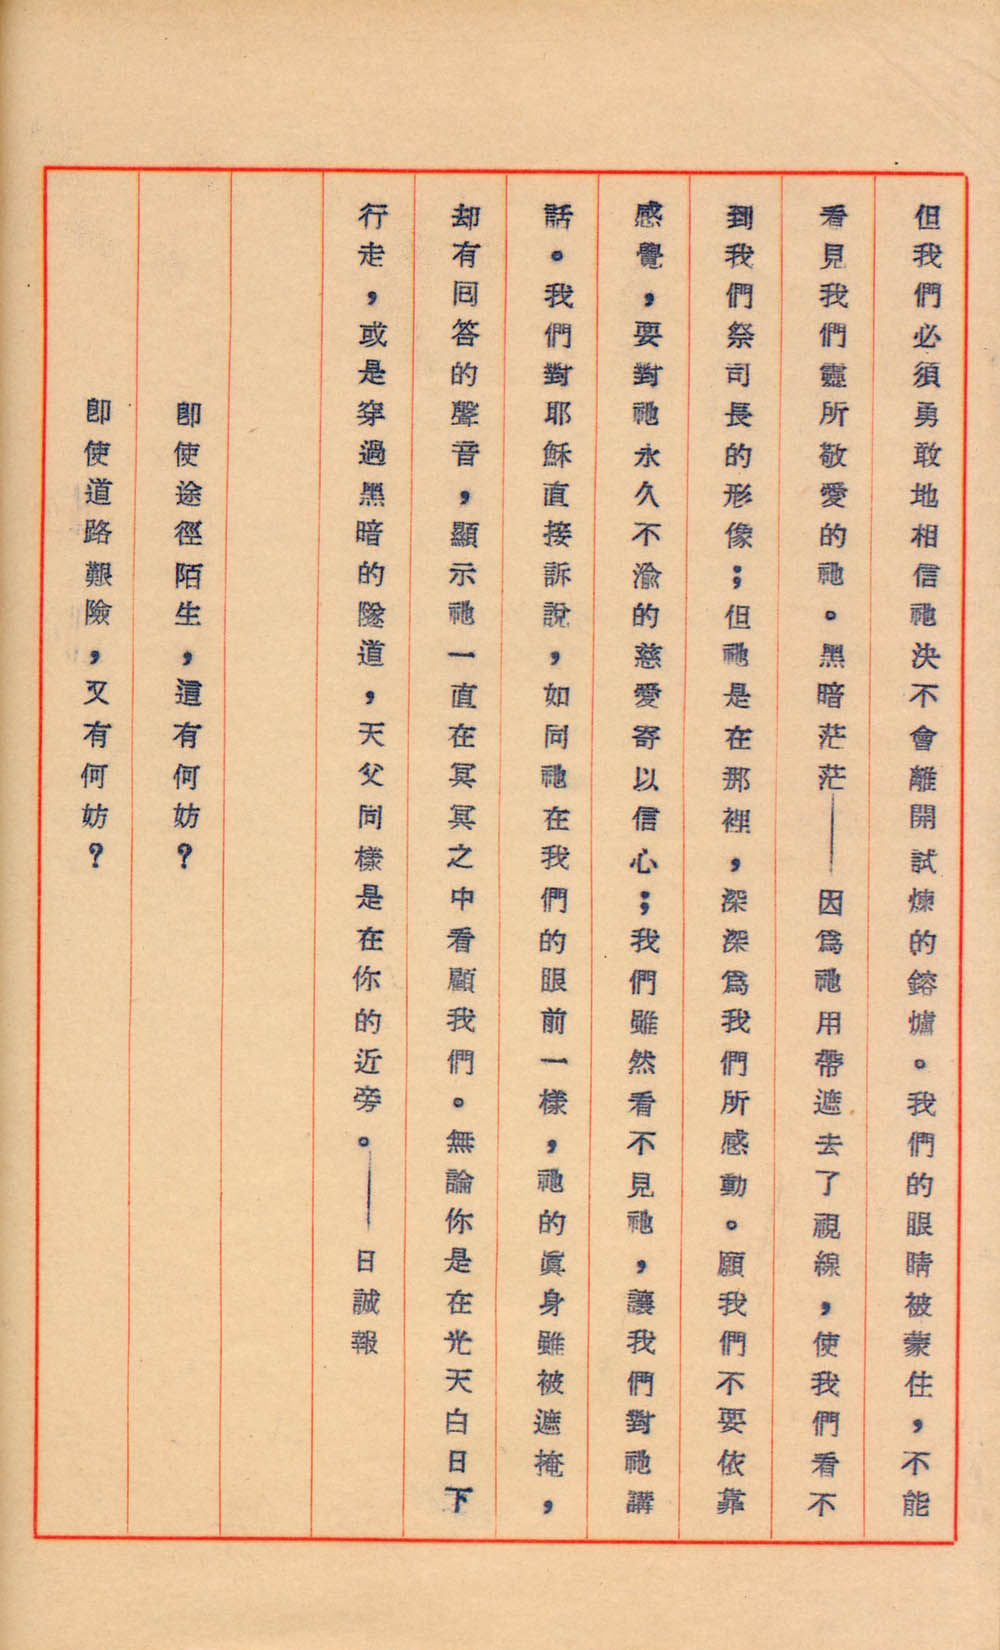 但我們必須勇敢地相信祂決不會離開試煉的鎔爐。我們的眼睛被蒙住，不能
看見我們靈所敬愛的祂。黑暗茫茫——因爲祂用帶遮去了視線，使我們看不
到我們祭司長的形像；但祂是在那裡，深深爲我們所感動。願我們不要依靠
感覺，要對祂永久不渝的慈愛寄以信心；我們雖然看不見祂，讓我們對祂講
話。我們對耶穌直接訴說，如同祂在我們的眼前一樣，祂的眞身雖被遮掩，
却有回答的聲音，顯示祂一直在冥冥之中看顧我們。無論你是在光天白日下
行走，或是穿過黑暗的隧道，天父同樣是在你的近旁。——日誠報
卽使途徑陌生，這有何妨？
卽使道路艱險，又有何妨？